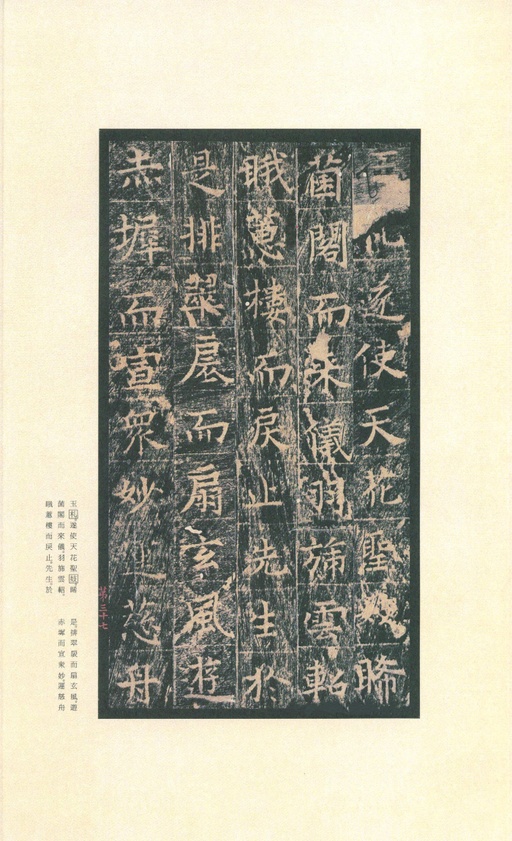 遂使天花聖睎
菌閣而來儀羽旆雲軺
睋蕙樓而戾止先生於
是排翠扆而扇玄風遊
赤墀而宣衆妙運慈舟
第三十七
玉遂使天花聖睎
菌閣而來儀羽旆雲軺。
睋蕙樓而戾止。先生於
是。排翠扆而扇玄風。遊
赤墀而宣衆妙。運慈舟